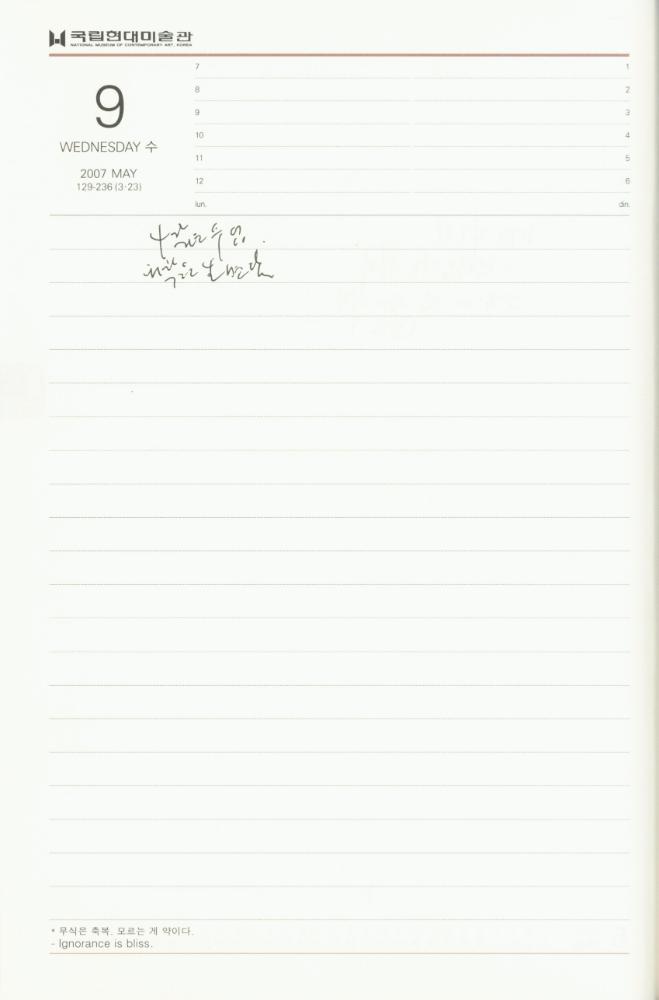 국립현대미술관
NATIONAL MUSEUM OF CONTEMPORARY ART, KOREA
9
WEDNESDAY 수
2007 MAY
129-236 (3·23)
7 1
8 2
9 3
10 4
11 5
12 6
lun. din.
* 무식은 축복. 모르는 게 약이다.
- Ignorance is bliss.